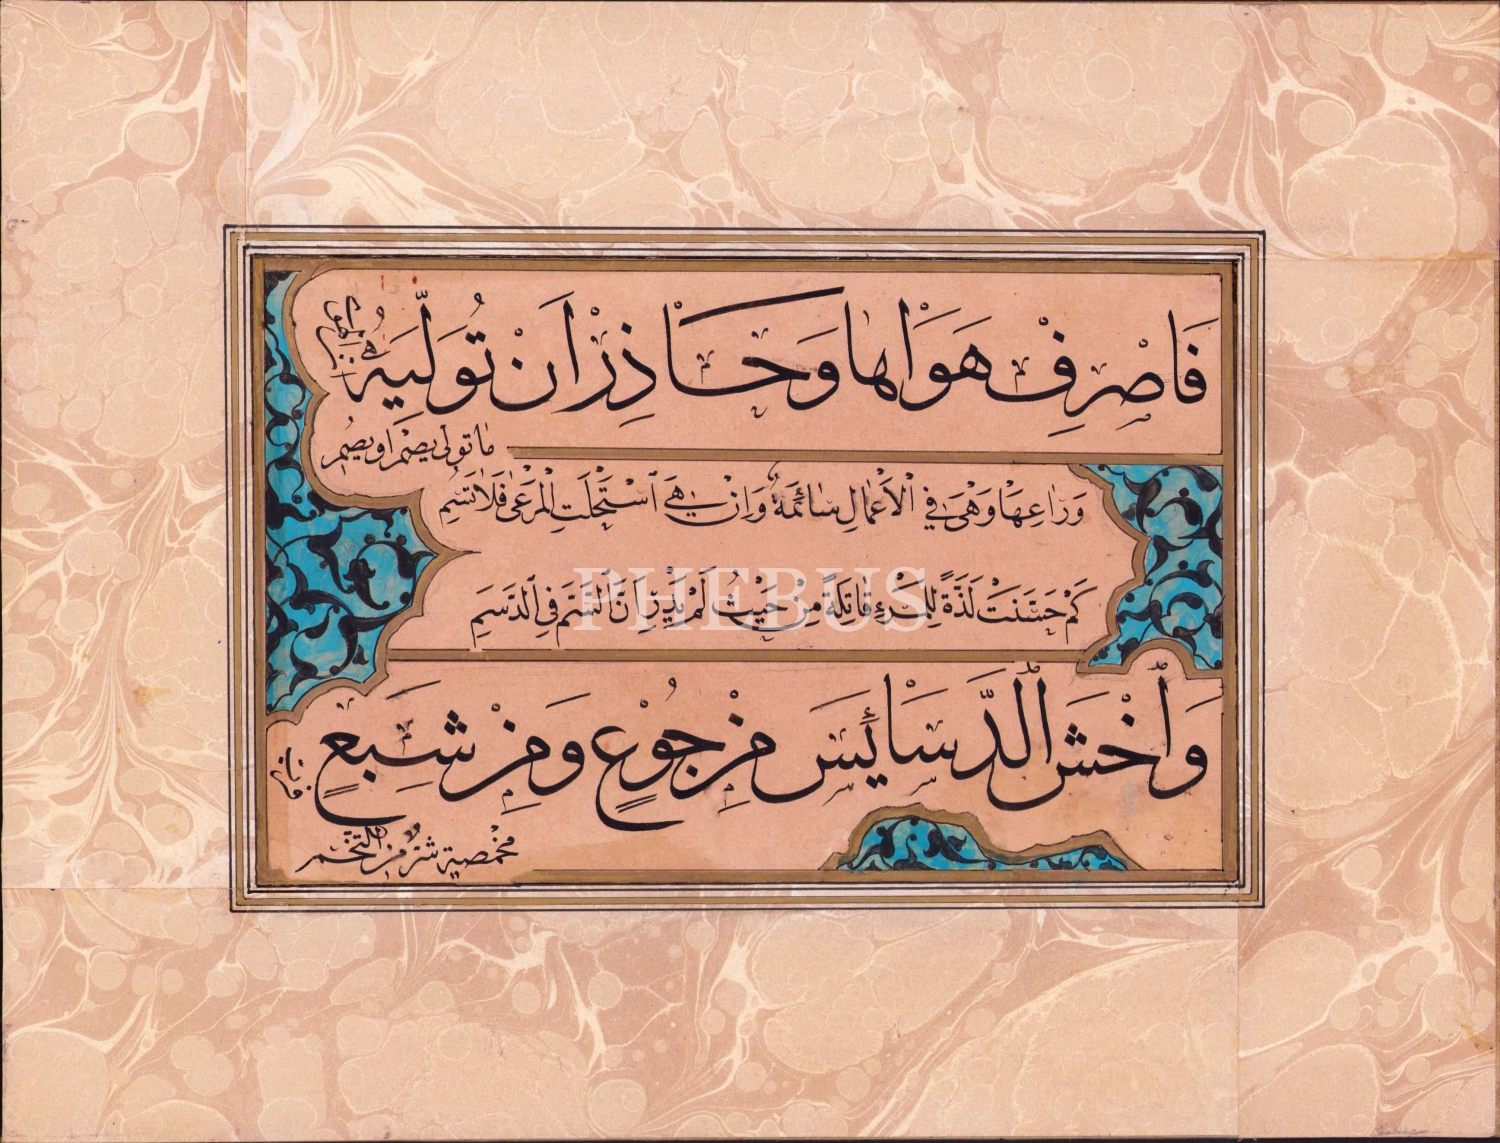 فَاصْرِفْ هَوَاهَا وَحَاذِرْ اَنْ تُوَلِّيَهُ
اِنَّ الْهَوٰى
مَا تَوَلّٰى يُصْمِ اَوْ يَصِمِ
وَرَاعِهَا وَهْىَ فِي الْاَعْمَالِ سَائِمَةٌ وَاِنْ هِيَ اسْتَحْلَتِ الْمَرْعٰى فَلَا تُسِمِ
كَمْ حَسَّنَتْ لَذَّةً لِلْمَرْءِ قَاتِلَةً مِنْ حَيْثُ لَمْ يَدْرِ اَنَّ السَّمَّ فِي الدَّسَمِ
PHEBUS
وَاخْشَ الدَّسَائِسَ مِنْ جُوعٍ وَمِنْ شِبَعٍ
فَرُبَّ
مَخْمَصَةٍ شَرٌّ مِنَ التُّخَمِ